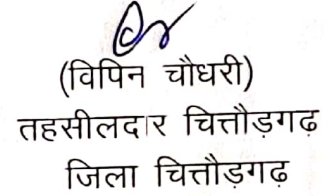 (विपिन चौधरी)
तहसीलदार चित्तौड़गढ़
जिला चित्तौड़गढ़